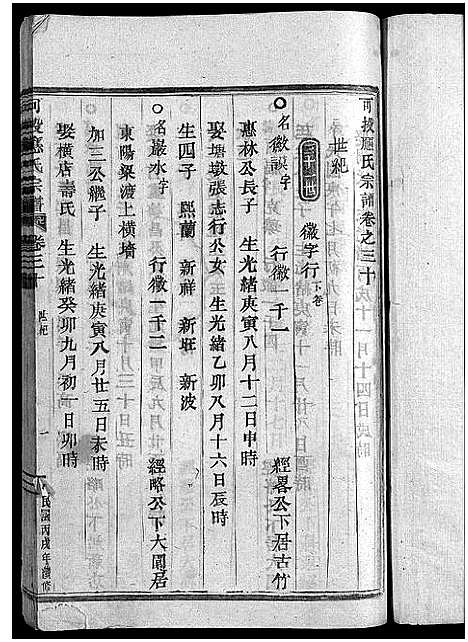 可投應氏宗譜卷之三十
世紀
徽字行 下卷
名徽説 字 行徽一千一 經畧公下居古竹
惠林公長子 生光緒庚寅八月十二日申時
娶塘墩張志行公女 生光緒乙卯八月十六日辰時
生四子 熙蘭 新祥 新班 新波
名嚴水 字 行徽一千二 經略公下大園居
東陽梁渡上橫墻
加三公繼子 生光緒庚寅八月廿五日未時
娶橫店壽氏 生光緒癸卯九月初一日卯時
可投應氏宗譜 卷三十 世紀 一 民國丙戌年續修